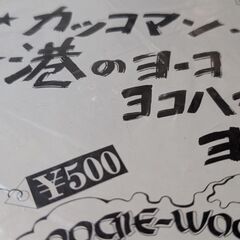 ★カッコマン
港のヨーコ
ヨコハ
ヨ
¥500
OOGIE-WOO